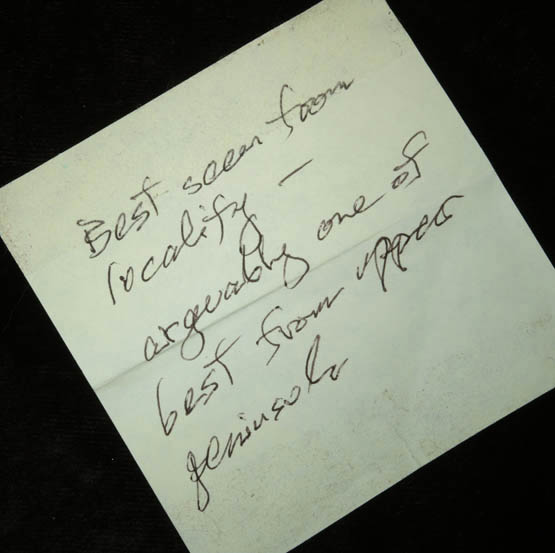 Best seen from
locality –
arguably one of
best from upper
peninsula